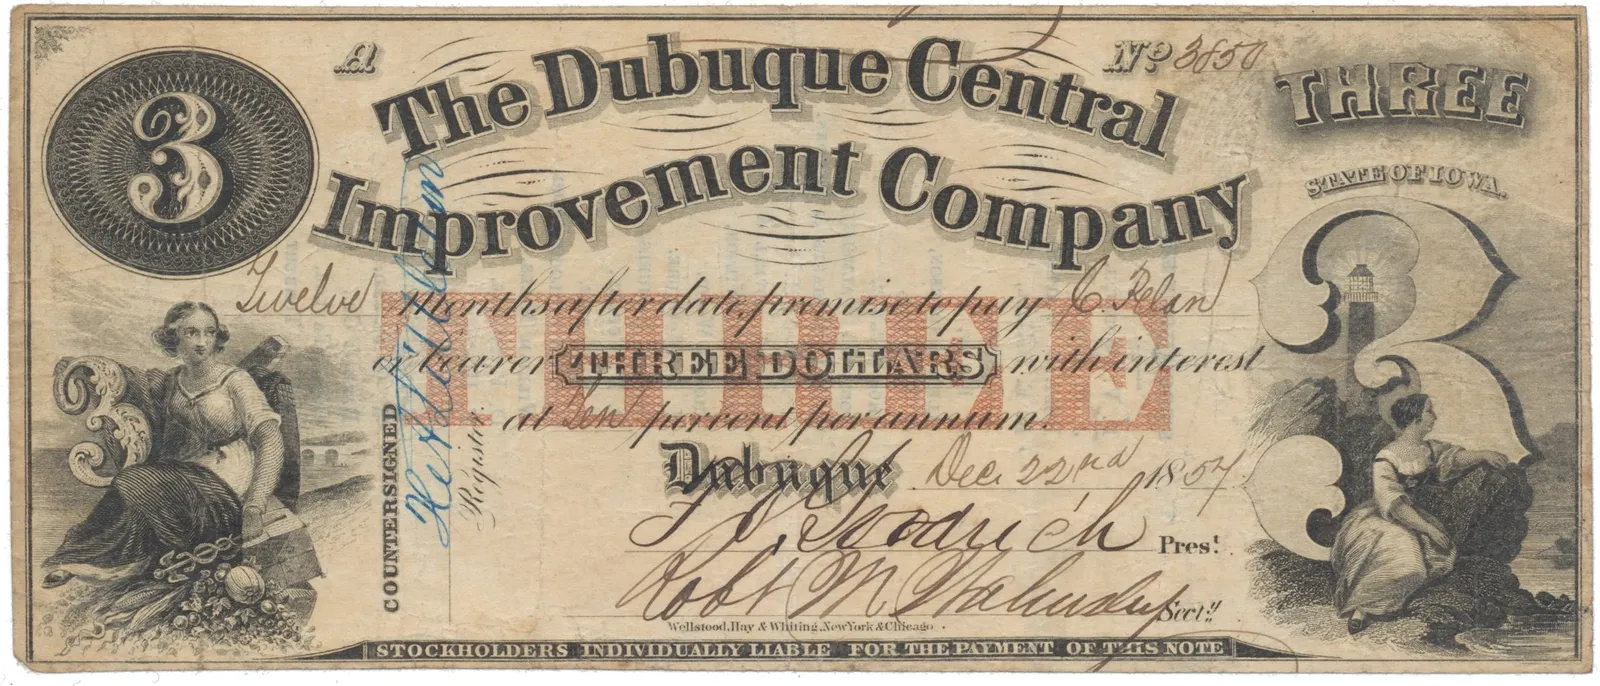 A
No 3850
The Dubuque Central
Improvement Company
3
THREE
STATE OF IOWA.
3
3
Twelve Months after date, promise to pay C. Relan
or bearer THREE DOLLARS with interest
THREE
at Ten per cent per annum.
Dubuque Dec. 22nd 1857
COUNTERSIGNED
Register
Goodrich Prest.
Robt M Secty.
Wellstood, Hay & Whiting, New York & Chicago.
STOCKHOLDERS INDIVIDUALLY LIABLE FOR THE PAYMENT OF THIS NOTE